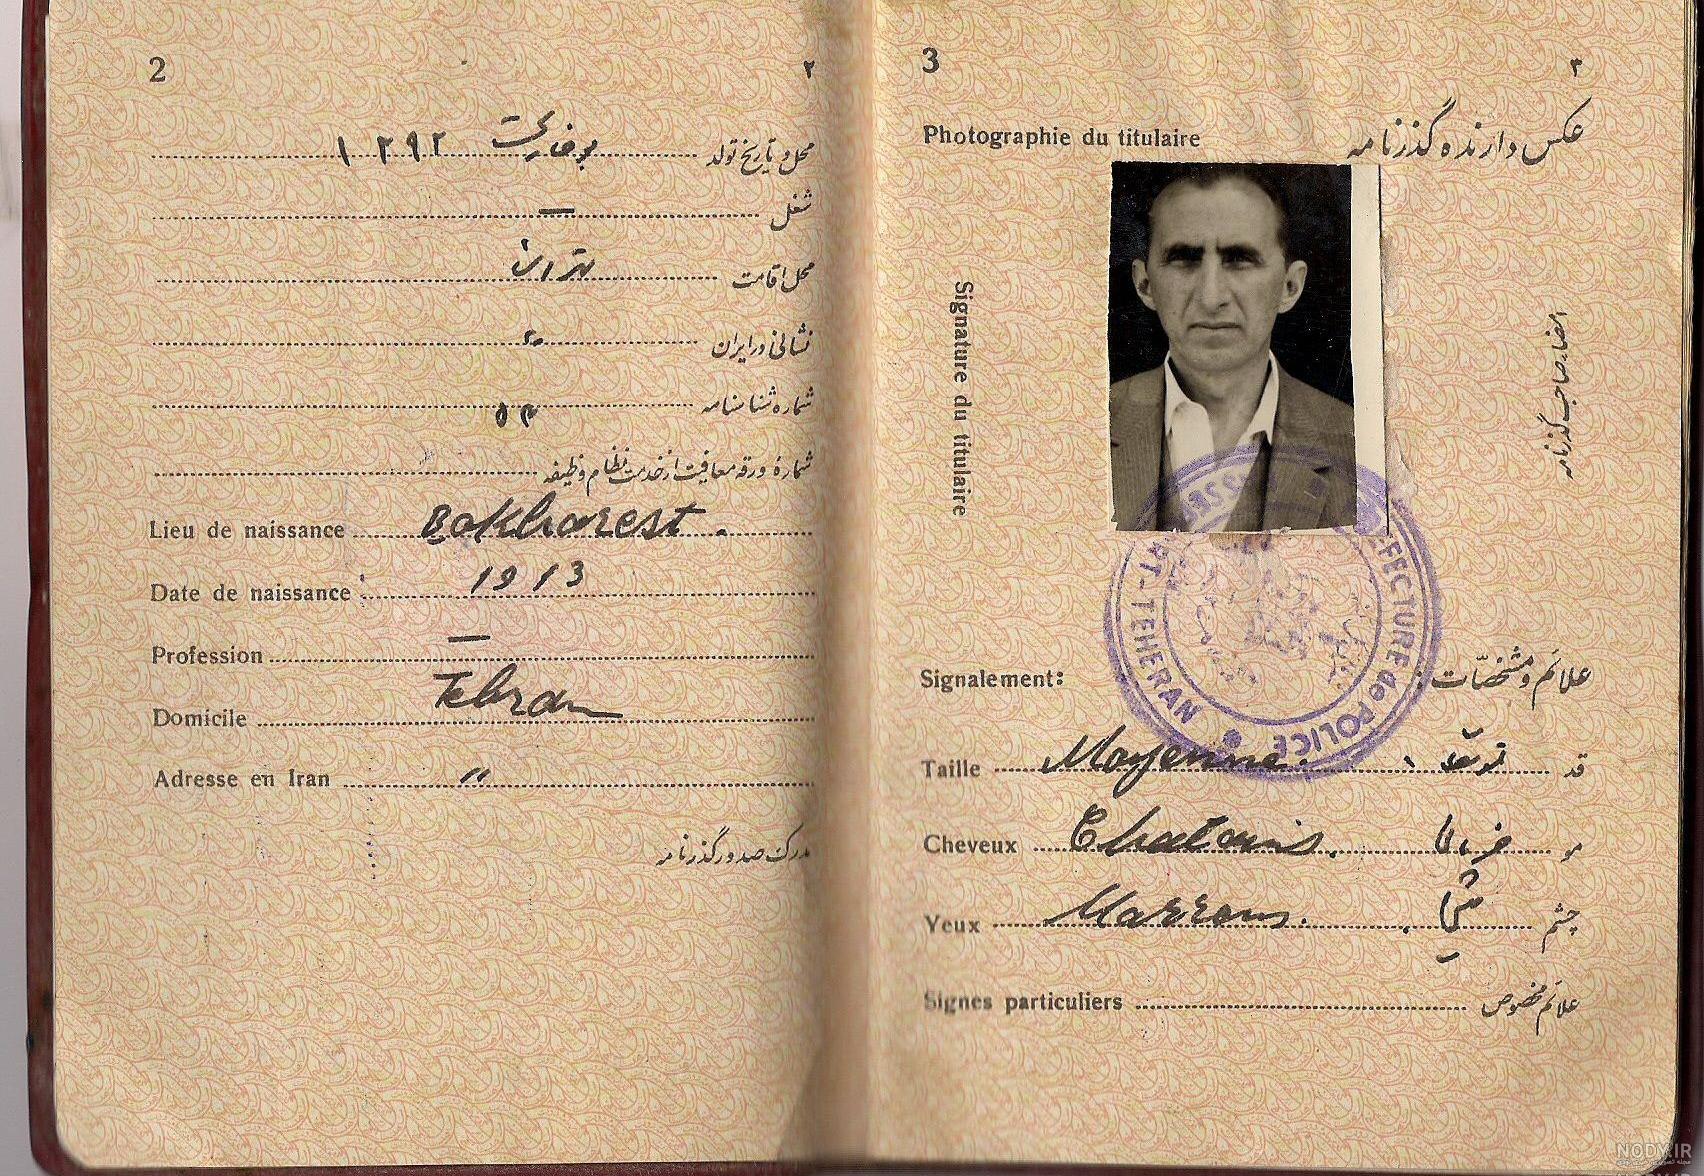 2
۲
محل و تاریخ تولد بوخارست ۱۲۹۲
شغل —
محل اقامت تهران
نشانی در ایران
شماره شناسنامه ۵۳
شمارهٔ ورقه معافیت از خدمت نظام وظیفه
Lieu de naissance Bokharest.
Date de naissance 1913
Profession —
Domicile Tehran
Adresse en Iran "
مدرک صدور گذرنامه
3
۳
Photographie du titulaire
عکس دارنده گذرنامه
Signature du titulaire
امضاء صاحب گذرنامه
PREFECTURE de POLICE
TEHERAN
Signalement:
علائم و مشخصّات:
Taille Moyenne. متوسط قد
Cheveux Chatains. خرمائی مو
Yeux Marrons. میشی چشم
Signes particuliers علائم مخصوص
NODY.IR